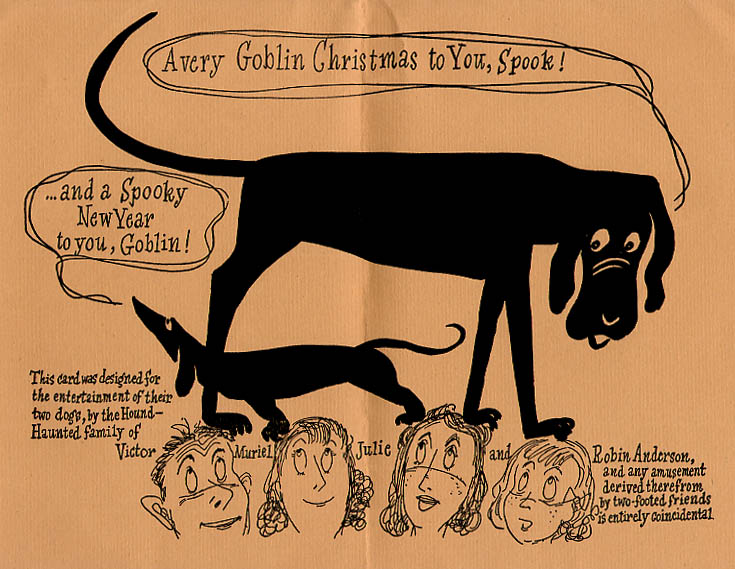 Avery Goblin Christmas to You, Spook!
...and a Spooky
New Year
to you, Goblin!
This card was designed for
the entertainment of their
two dogs, by the Hound-
Haunted family of
Victor
Muriel
Julie
and
Robin Anderson,
and any amusement
derived therefrom
by two-footed friends
is entirely coincidental